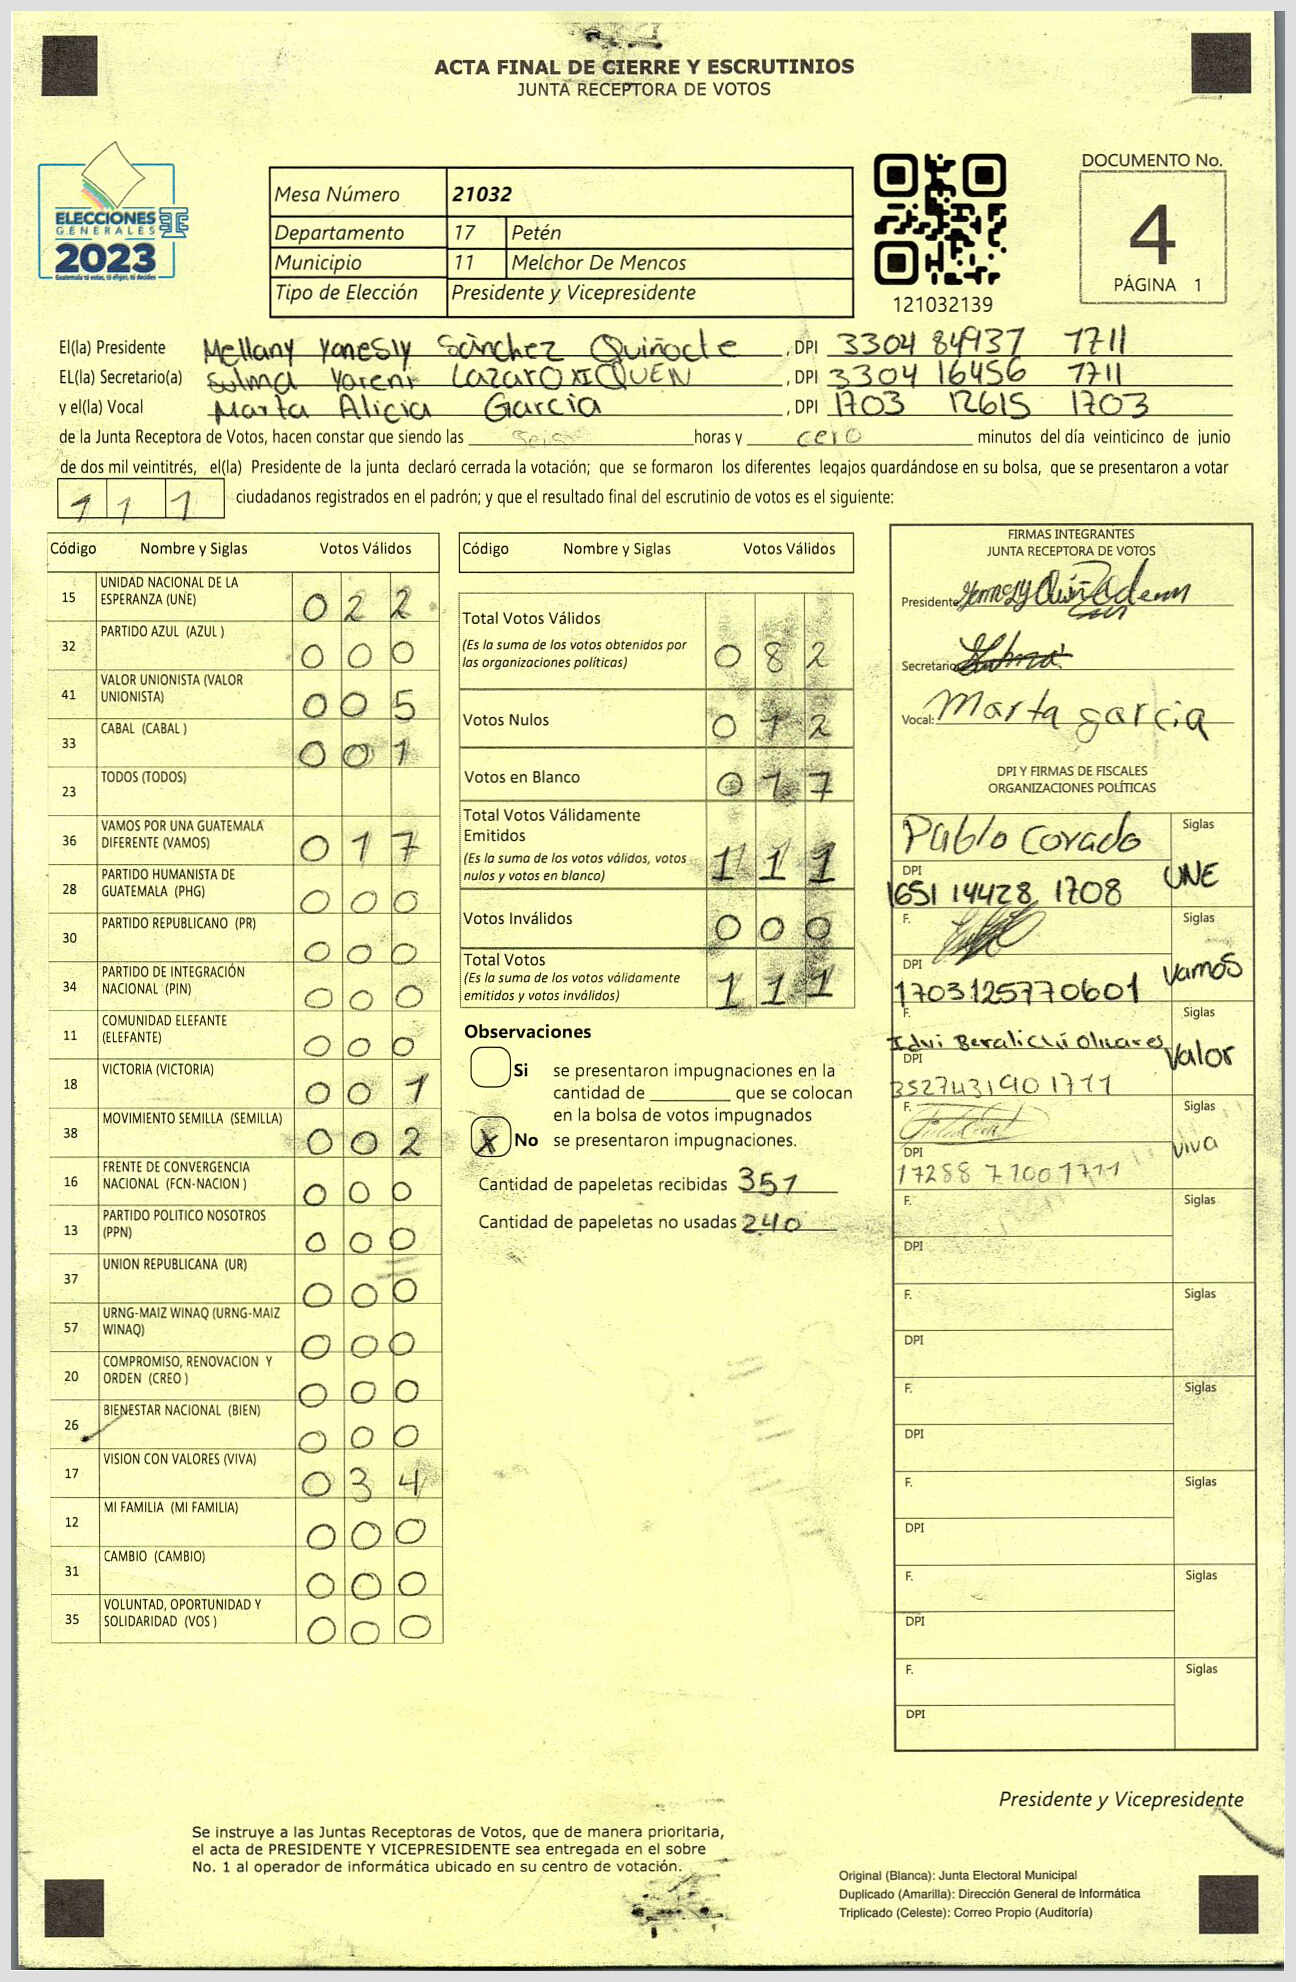 ACTA FINAL DE CIERRE Y ESCRUTINIOS
JUNTA RECEPTORA DE VOTOS
ELECCIONES
GENERALES
2023
Guatemala tú votas, tú eliges, tú decides
Mesa Número 21032
Departamento 17 Petén
Municipio 11 Melchor De Mencos
Tipo de Elección Presidente y Vicepresidente
121032139
DOCUMENTO No.
4
PÁGINA 1
El(la) Presidente Mellany Yanesly Sánchez Quiñode, DPI 3304 84937 1711
EL(la) Secretario(a) Sulma Yareni Lazaro XIQUEN, DPI 3304 16456 1711
y el(la) Vocal Marta Alicia Garcia, DPI 1703 12615 1703
de la Junta Receptora de Votos, hacen constar que siendo las seis horas y cero minutos del día veinticinco de junio
de dos mil veintitrés, el(la) Presidente de la junta declaró cerrada la votación; que se formaron los diferentes legajos guardándose en su bolsa, que se presentaron a votar
1 1 1 ciudadanos registrados en el padrón; y que el resultado final del escrutinio de votos es el siguiente:
Código Nombre y Siglas Votos Válidos
15 UNIDAD NACIONAL DE LA ESPERANZA (UNE) 0 2 2
32 PARTIDO AZUL (AZUL ) 0 0 0
41 VALOR UNIONISTA (VALOR UNIONISTA) 0 0 5
33 CABAL (CABAL ) 0 0 1
23 TODOS (TODOS)
36 VAMOS POR UNA GUATEMALA DIFERENTE (VAMOS) 0 1 7
28 PARTIDO HUMANISTA DE GUATEMALA (PHG) 0 0 0
30 PARTIDO REPUBLICANO (PR) 0 0 0
34 PARTIDO DE INTEGRACIÓN NACIONAL (PIN) 0 0 0
11 COMUNIDAD ELEFANTE (ELEFANTE) 0 0 0
18 VICTORIA (VICTORIA) 0 0 1
38 MOVIMIENTO SEMILLA (SEMILLA) 0 0 2
16 FRENTE DE CONVERGENCIA NACIONAL (FCN-NACION ) 0 0 0
13 PARTIDO POLITICO NOSOTROS (PPN) 0 0 0
37 UNION REPUBLICANA (UR) 0 0 0
57 URNG-MAIZ WINAQ (URNG-MAIZ WINAQ) 0 0 0
20 COMPROMISO, RENOVACION Y ORDEN (CREO ) 0 0 0
26 BIENESTAR NACIONAL (BIEN) 0 0 0
17 VISION CON VALORES (VIVA) 0 3 4
12 MI FAMILIA (MI FAMILIA) 0 0 0
31 CAMBIO (CAMBIO) 0 0 0
35 VOLUNTAD, OPORTUNIDAD Y SOLIDARIDAD (VOS ) 0 0 0
Código Nombre y Siglas Votos Válidos
Total Votos Válidos 0 8 2
(Es la suma de los votos obtenidos por
las organizaciones políticas)
Votos Nulos 0 1 2
Votos en Blanco 0 1 7
Total Votos Válidamente
Emitidos 1 1 1
(Es la suma de los votos válidos, votos
nulos y votos en blanco)
Votos Inválidos 0 0 0
Total Votos 1 1 1
(Es la suma de los votos válidamente
emitidos y votos inválidos)
Observaciones
Si se presentaron impugnaciones en la
cantidad de ________ que se colocan
en la bolsa de votos impugnados
X No se presentaron impugnaciones.
Cantidad de papeletas recibidas 351
Cantidad de papeletas no usadas 240
FIRMAS INTEGRANTES
JUNTA RECEPTORA DE VOTOS
Presidente
Secretario
Vocal: Marta garcia
DPI Y FIRMAS DE FISCALES
ORGANIZACIONES POLÍTICAS
Pablo Corado Siglas
DPI 1651 14428 1708 UNE
F. Siglas
DPI 1703125770601 Vamos
F. Siglas
DPI 3527431901711 Valor
F. Siglas
DPI 17288 71001711 viva
F. Siglas
DPI
F. Siglas
DPI
F. Siglas
DPI
F. Siglas
DPI
F. Siglas
DPI
F. Siglas
DPI
Presidente y Vicepresidente
Se instruye a las Juntas Receptoras de Votos, que de manera prioritaria,
el acta de PRESIDENTE Y VICEPRESIDENTE sea entregada en el sobre
No. 1 al operador de informática ubicado en su centro de votación.
Original (Blanca): Junta Electoral Municipal
Duplicado (Amarilla): Dirección General de Informática
Triplicado (Celeste): Correo Propio (Auditoría)